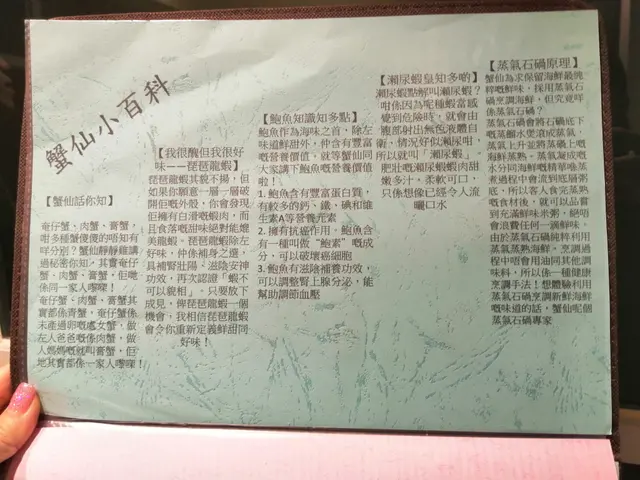 蟹仙小百科
【蟹仙話你知】
奄仔蟹，肉蟹，膏蟹，
咁多種蟹傻傻的唔知有
咩分別？蟹仙靜靜雞講
過秘密你知，其實奄仔
蟹、肉蟹、膏蟹，佢哋
係同一家人嚟㗎！
奄仔蟹、肉蟹、膏蟹其
實都係青蟹，奄仔蟹係
未產過卵嘅處女蟹，做
左人爸爸嘅係肉蟹，做
人媽媽嘅就叫膏蟹，佢
地其實都係一家人嚟㗎！
【我很醜但我很好
味——琵琶龍蝦】
琵琶龍蝦其貌不揚，但
如果你願意一層一層破
開佢嘅外殼，你會發現
佢擁有白滑嘅蝦肉，而
且食落嘅甜味絕對能媲
美龍蝦，琵琶龍蝦除左
好味，仲係補身之選，
具補腎壯陽、滋陰安神
功效，再次認證「蝦不
可以貌相」。只要放下
成見，俾琵琶龍蝦一個
機會，我相信琵琶龍蝦
會令你重新定義鮮甜同
好味！
【鮑魚知識知多點】
鮑魚作為海味之首，除左
味道鮮甜外，仲含有豐富
嘅營養價值，就等蟹仙同
大家講下鮑魚嘅營養價值
啦！
1. 鮑魚含有豐富蛋白質，
有較多的鈣、鐵、碘和維
生素A等營養元素
2. 擁有抗癌作用，鮑魚含
有一種叫做“鮑素”嘅成
分，可以破壞癌細胞
3. 鮑魚有滋陰補養功效，
可以調整腎上腺分泌，能
幫助調節血壓
【瀨尿蝦皇知多啲】
瀨尿蝦點解叫瀨尿蝦？
咁係因為呢種蝦當感
覺到危險時，就會由
腹部射出無色液體自
衛，情況好似瀨尿咁，
所以就叫「瀨尿蝦」，
肥壯嘅瀨尿蝦蝦肉甜
嫩多汁，柔軟可口，
只係想像已經令人流
曬口水
【蒸氣石鍋原理】
蟹仙為求保留海鮮最純
粹嘅鮮味，採用蒸氣石
鍋烹調海鮮，但究竟咩
係蒸氣石鍋？
蒸氣石鍋會將石鍋底下
嘅蒸餾水煲滾成蒸氣，
蒸氣上升並將蒸欄上嘅
海鮮蒸熟。蒸氣凝成嘅
水分同海鮮嘅精華喺蒸
煮過程中會流到底層粥
底，所以客人食完蒸熟
嘅食材後，就可以品嘗
到充滿鮮味米粥，絕唔
會浪費任何一滴鮮味，
由於蒸氣石鍋純粹利用
蒸氣蒸熟海鮮，烹調過
程中唔會用油同其他調
味料，所以係一種健康
烹調手法！想體驗利用
蒸氣石鍋烹調新鮮海鮮
嘅味道的話，蟹仙呢個
蒸氣石鍋專家